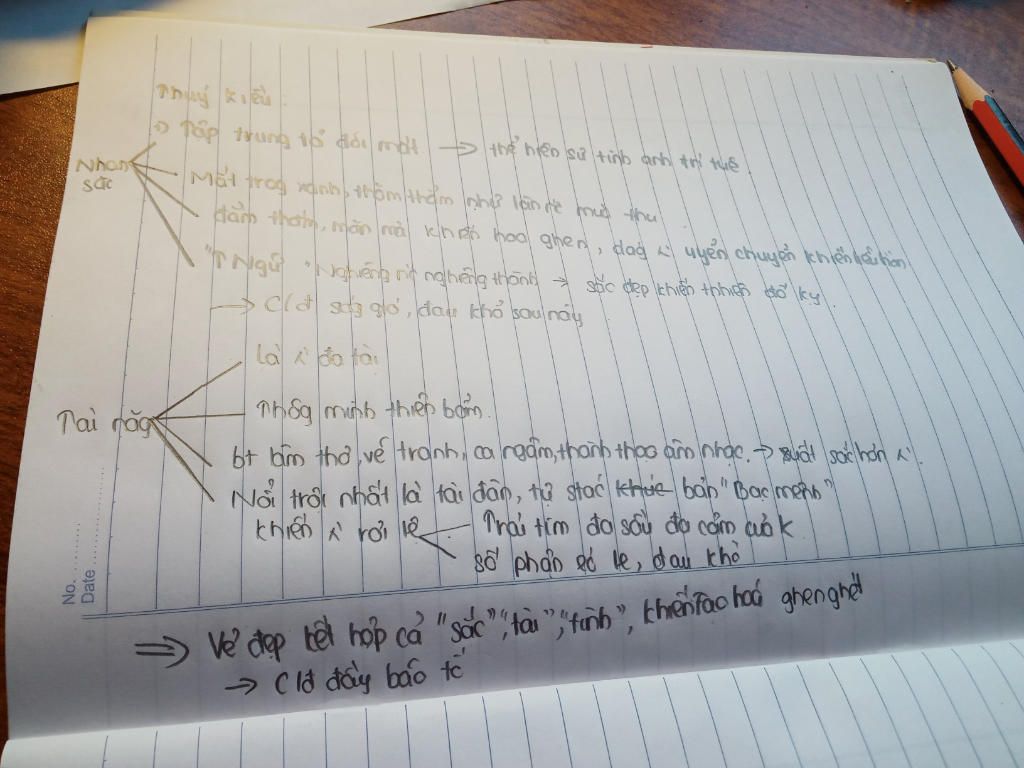 Thuý Kiều:
Nhan sắc
-> Tập trung tả đôi mắt -> thể hiện sự tinh anh trí tuệ.
Mắt trog xanh, thăm thẳm như làn nc mùa thu
đằm thắm, mặn mà khiến hoa ghen, dág uyển chuyển khiến liễu hờn
"TNgữ "Nghiêng nc nghiêng thành -> sắc đẹp khiến thiên đố kỵ.
-> Cđ sóg gió, đau khổ sau này
Tài năg
là đa tài
Thôg minh thiên bẩm.
bt làm thơ, vẽ tranh, ca ngâm, thành thạo âm nhạc. -> xuất sắc hơn
Nổi trội nhất là tài đàn, tự stác khúc bản "Bạc mệnh"
khiến rơi lệ
Trái tim đa sầu đa cảm của K
số phận éo le, đau khổ
=> Vẻ đẹp kết hợp cả "sắc", "tài", "tình", khiến tạo hoá ghen ghét
-> Cđ đầy bão tố
No. ..........
Date ....................